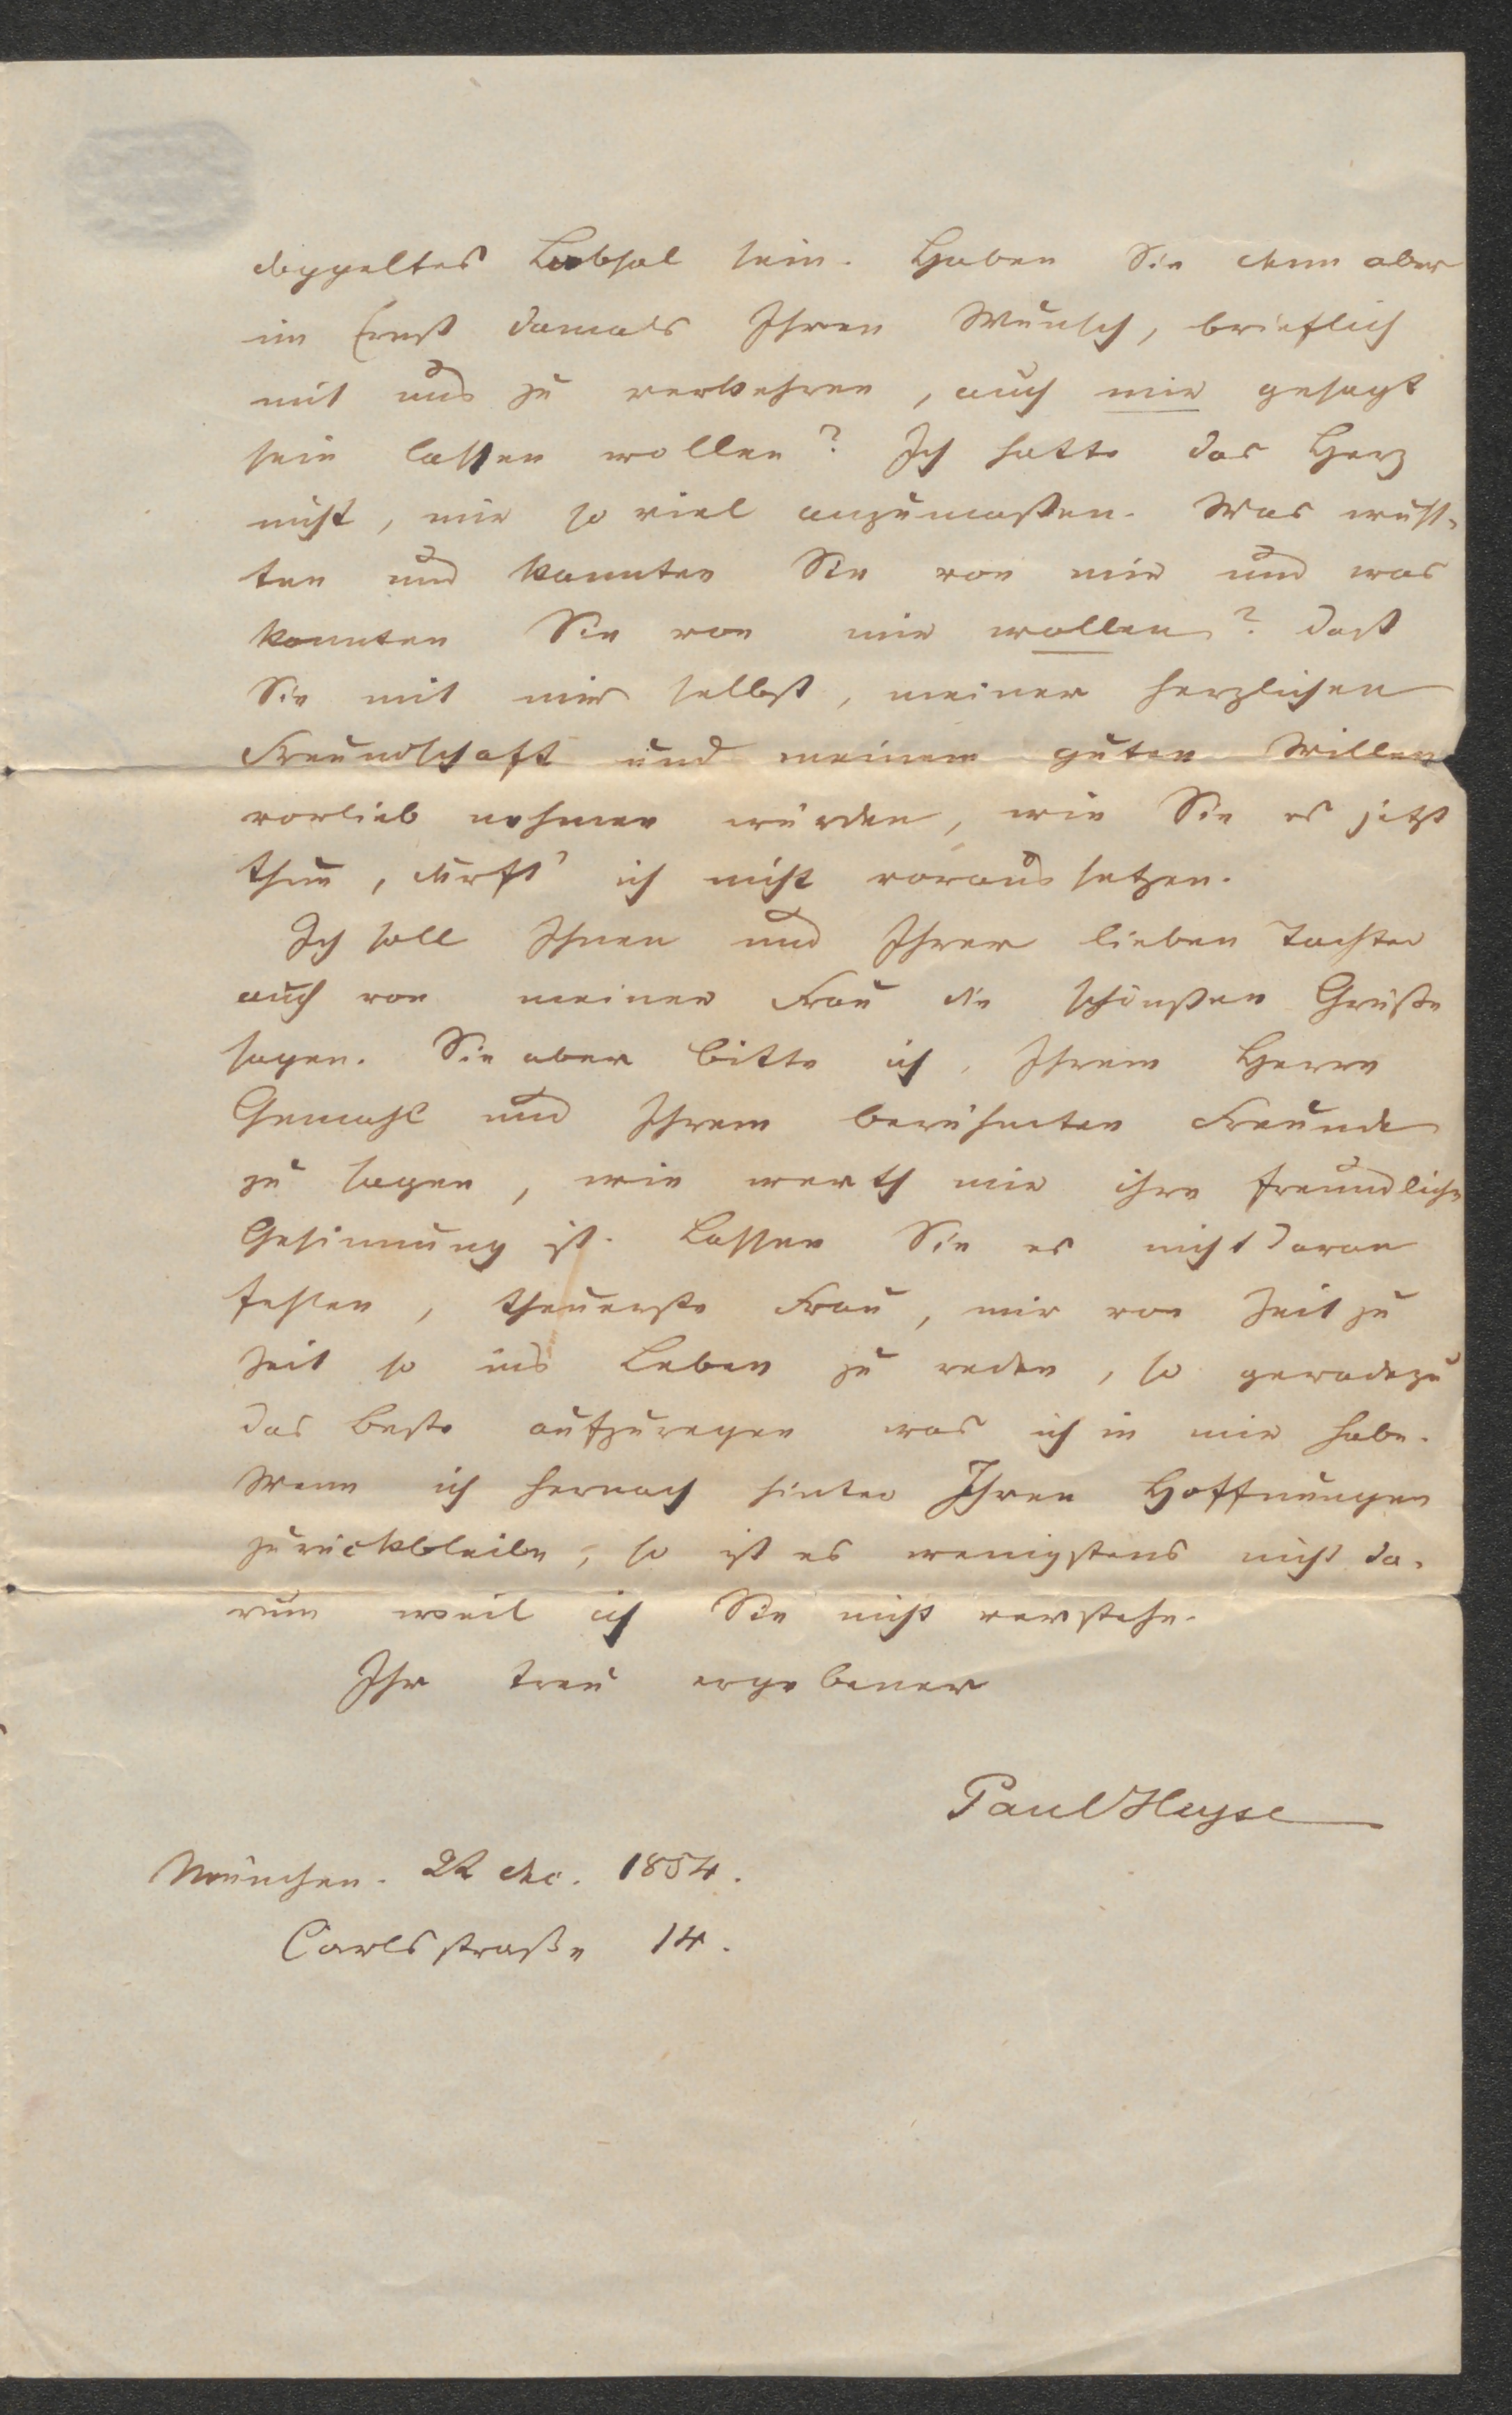 doppeltes Labsal sein. Haben Sie denn aber
im Ernst damals Ihren Wunsch, brieflich
mit uns zu verkehren, auch mir gesagt
sein lassen wollen? Ich hatte das Herz
nicht, mir so viel anzumaßen. Was wuß-
ten und kannten Sie von mir und was
konnten Sie von mir wollen? Daß
Sie mit mir selbst, meiner herzlichen
Freundschaft und meinem guten Willen
vorlieb nehmen würden, wie Sie es jetzt
thun, durft' ich nicht voraus setzen.
Ich soll Ihnen und Ihrer lieben Tochter
auch von meiner Frau die schönsten Grüße
sagen. Sie aber bitte ich, Ihrem Herrn
Gemahl und Ihrem berühmten Freunde
zu sagen, wie werth mir ihre freundliche
Gesinnung ist. Lassen Sie es nicht daran
fehlen, theuerste Frau, mir von Zeit zu
Zeit so ins Leben zu reden, so geradezu
das beste aufzuregen was ich in mir habe.
Wenn ich hernach hinter Ihren Hoffnungen
zurückbleibe, so ist es wenigstens nicht da-
rum weil ich Sie nicht verstehe.
Ihr treu ergebener
Paul Heyse
München. 22 Dec. 1854.
Carlsstraße 14.